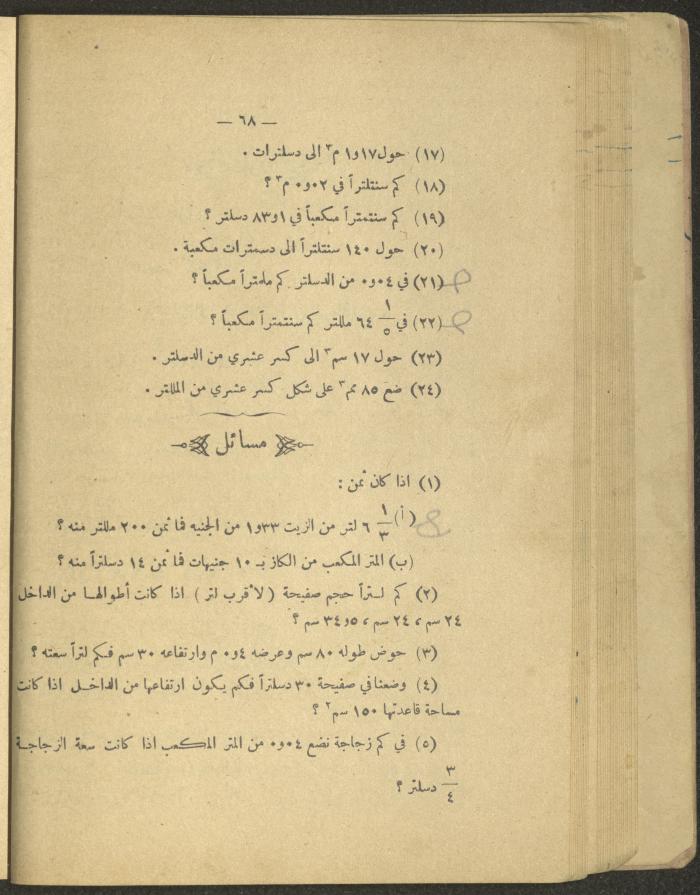 — ٦٨ —
(١٧) حول ١٧و١ م٣ الى دسلترات .
(١٨) كم سنتلتراً في ٠٢و٠ م٣ ؟
(١٩) كم سنتمتراً مكعباً في ٨٣و١ دسلتر ؟
(٢٠) حول ١٤٠ سنتلتراً الى دسمترات مكعبة .
(٢١) في ٠٤و٠ من الدسلتر كم ملمتراً مكعباً ؟
(٢٢) في ١/٥ ٦٤ مللتر كم سنتمتراً مكعباً ؟
(٢٣) حول ١٧ سم٣ الى كسر عشري من الدسلتر .
(٢٤) ضع ٨٥ مم٣ على شكل كسر عشري من الملتر .
مسائل
(١) اذا كان ثمن :
(أ) ١/٣ ٦ لتر من الزيت ٣٣و١ من الجنيه فما ثمن ٢٠٠ مللتر منه ؟
(ب) المتر المكعب من الكاز بـ ١٠ جنيهات فما ثمن ١٤ دسلتراً منه ؟
(٢) كم لتراً حجم صفيحة ( لأقرب لتر ) اذا كانت أطوالها من الداخل
٢٤ سم ، ٢٤ سم ، ٥و٣٤ سم ؟
(٣) حوض طوله ٨٠ سم وعرضه ٤و٠ م وارتفاعه ٣٠ سم فكم لتراً سعته ؟
(٤) وضعنا في صفيحة ٣٠ دسلتراً فكم يكون ارتفاعها من الداخل اذا كانت
مساحة قاعدتها ١٥٠ سم٢ ؟
(٥) في كم زجاجة نضع ٠٤و٠ من المتر المكعب اذا كانت سعة الزجاجة
٣/٤ دسلتر ؟